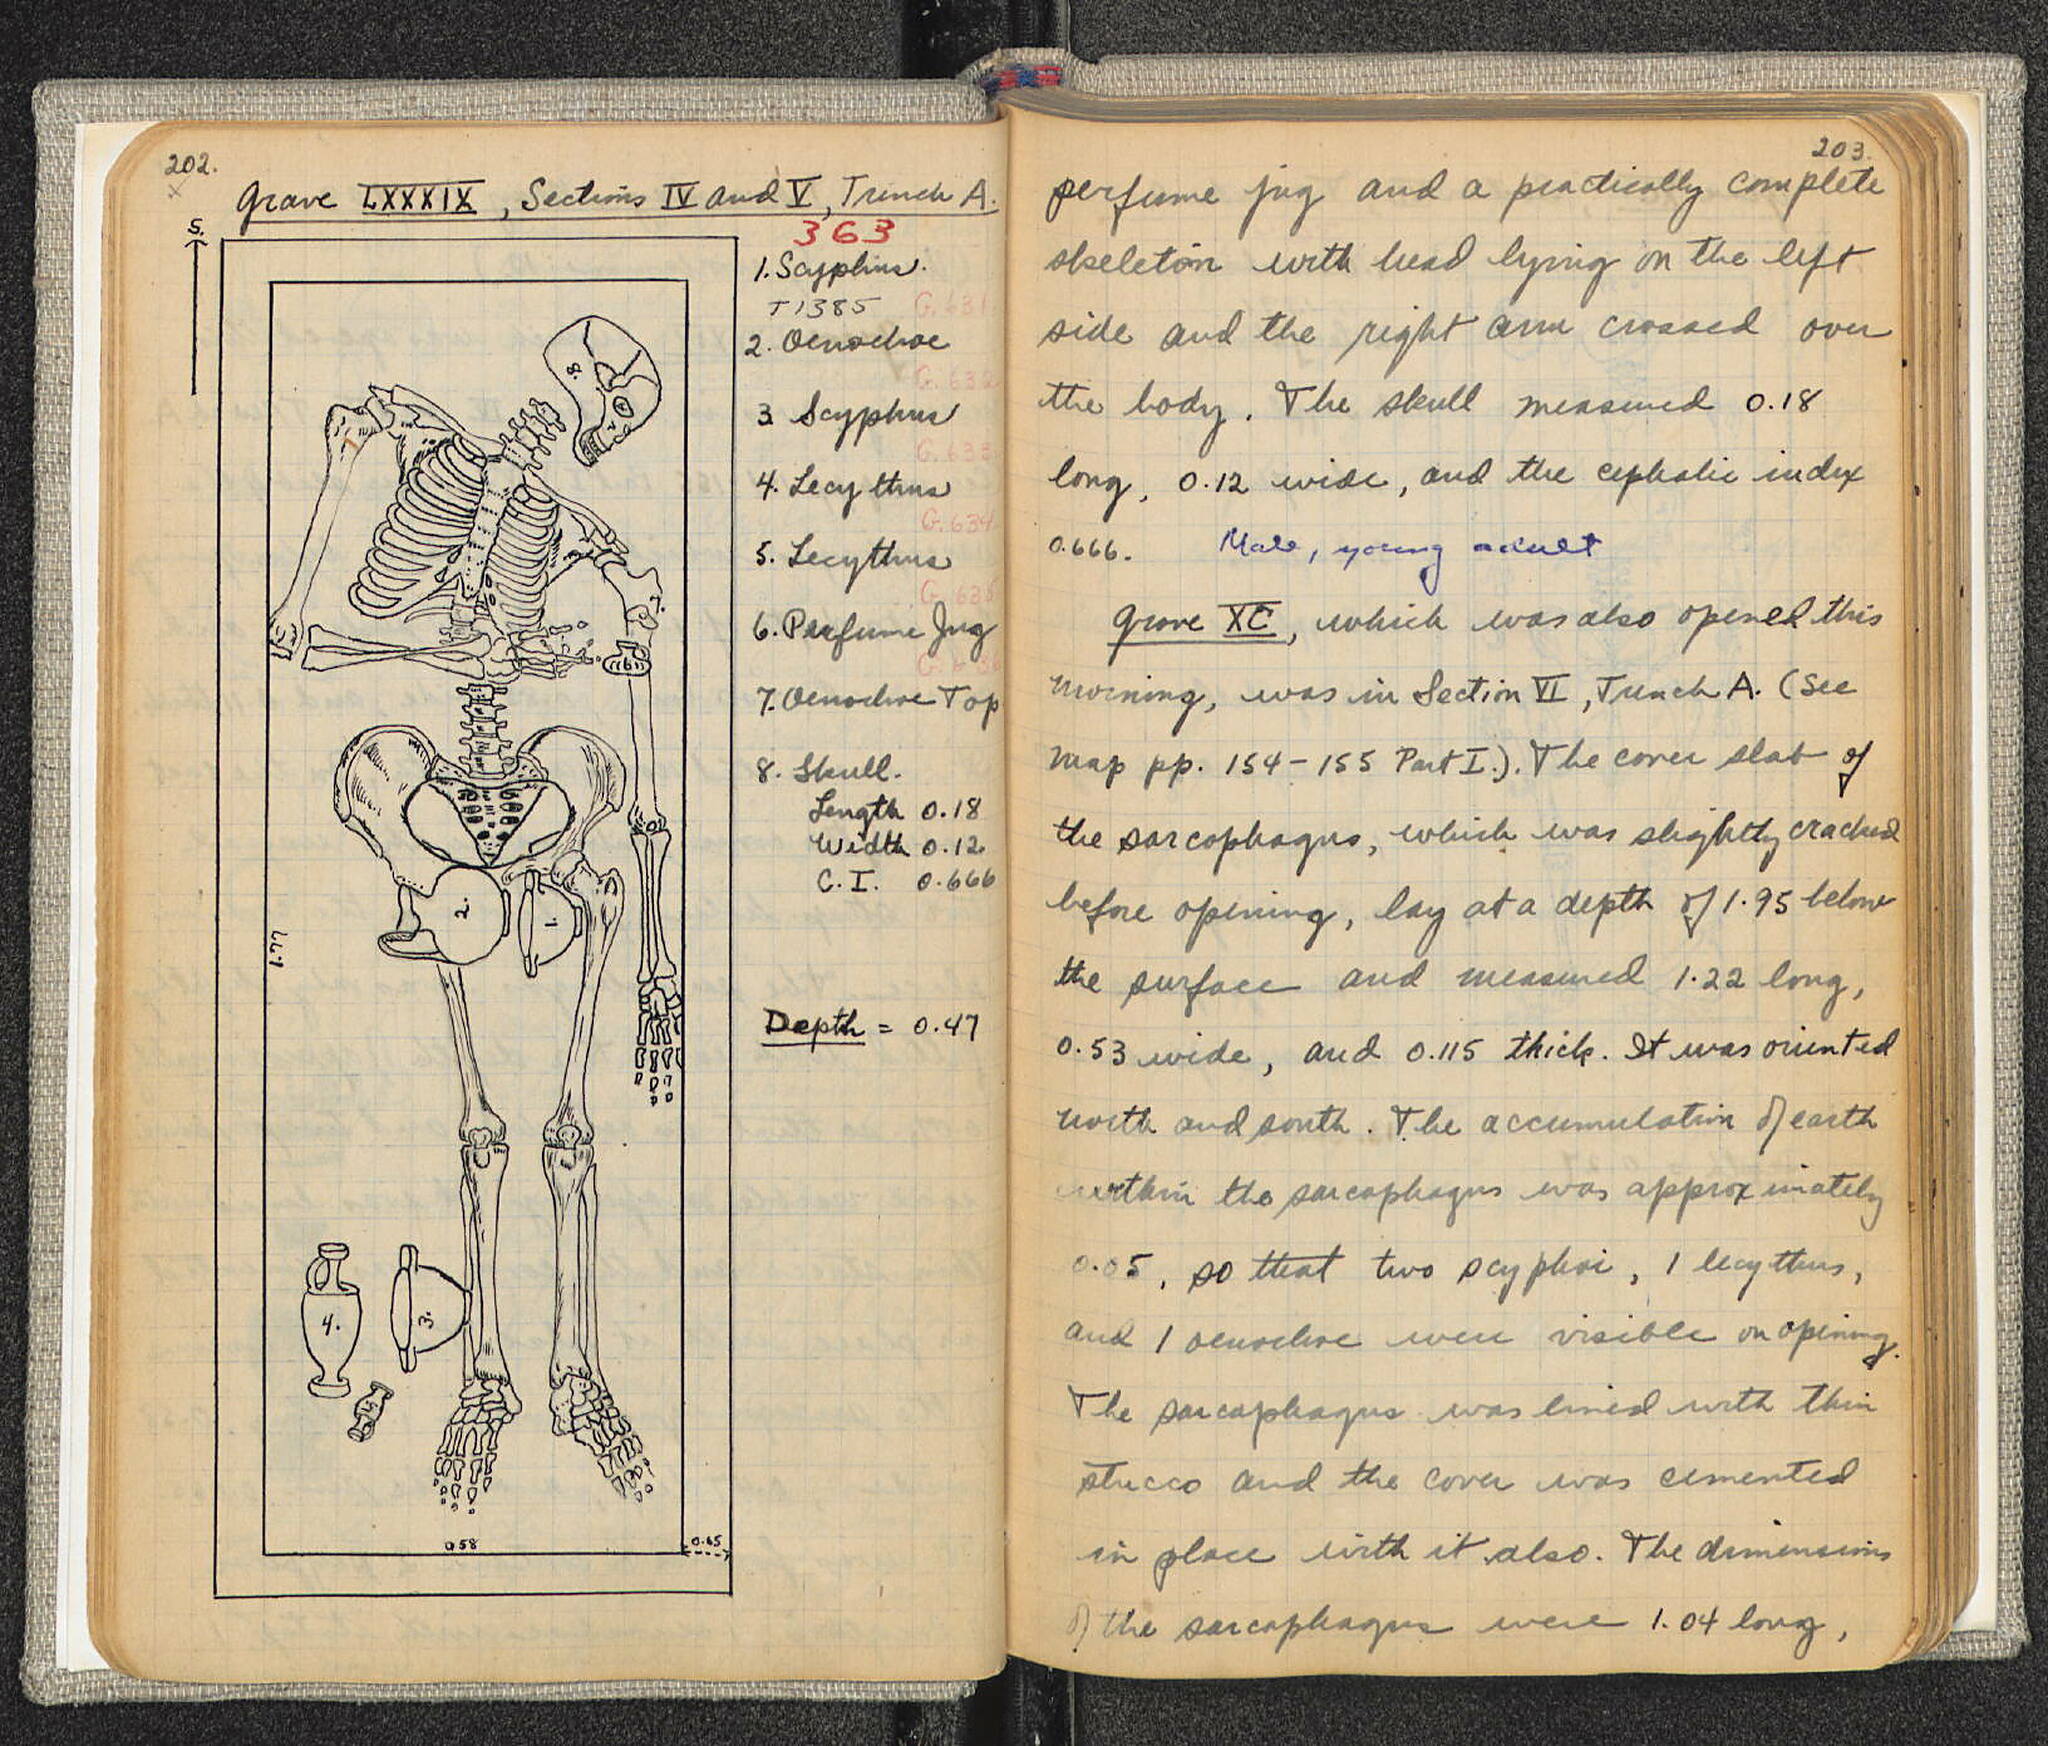 202.
Grave LXXXIX, Sections IV and V, Trench A.
S.
363
1. Scyphus.
T1385 G.631
2. Oenochoe
G.632
3 Scyphus
G.633
4. Lecythus
G.634
5. Lecythus
G.635
6. Perfume Jug
G.636
7. Oenochoe Top
8. Skull.
Length 0.18
Width 0.12
C.I. 0.666
Depth = 0.47
8.
7.
6
2.
1.
1.77
4.
3.
5
0.58
0.65
203.
perfume jug and a practically complete
skeleton with head lying on the left
side and the right arm crossed over
the body. The skull measured 0.18
long, 0.12 wide, and the cephalic index
0.666. Male, young adult
Grave XC, which was also opened this
morning, was in Section VI, Trench A. (See
map pp. 154-155 Part I.). The cover slab of
the sarcophagus, which was slightly cracked
before opening, lay at a depth of 1.95 below
the surface and measured 1.22 long,
0.53 wide, and 0.115 thick. It was oriented
north and south. The accumulation of earth
within the sarcophagus was approximately
0.05, so that two scyphoi, 1 lecythus,
and 1 oenochoe were visible on opening.
The sarcophagus was lined with thin
stucco and the cover was cemented
in place with it also. The dimensions
of the sarcophagus were 1.04 long,